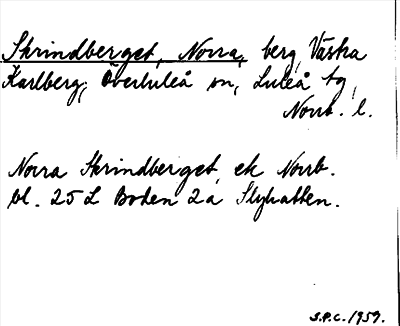 Skrindberget, Norra, berg, Västra
Karlberg, Överluleå sn, Luleå tg,
Norrb. l.
Norra Skrindberget, ek Norrb.
bl. 25 L Boden 2a Slyhatten.
S.P.C. 1959.